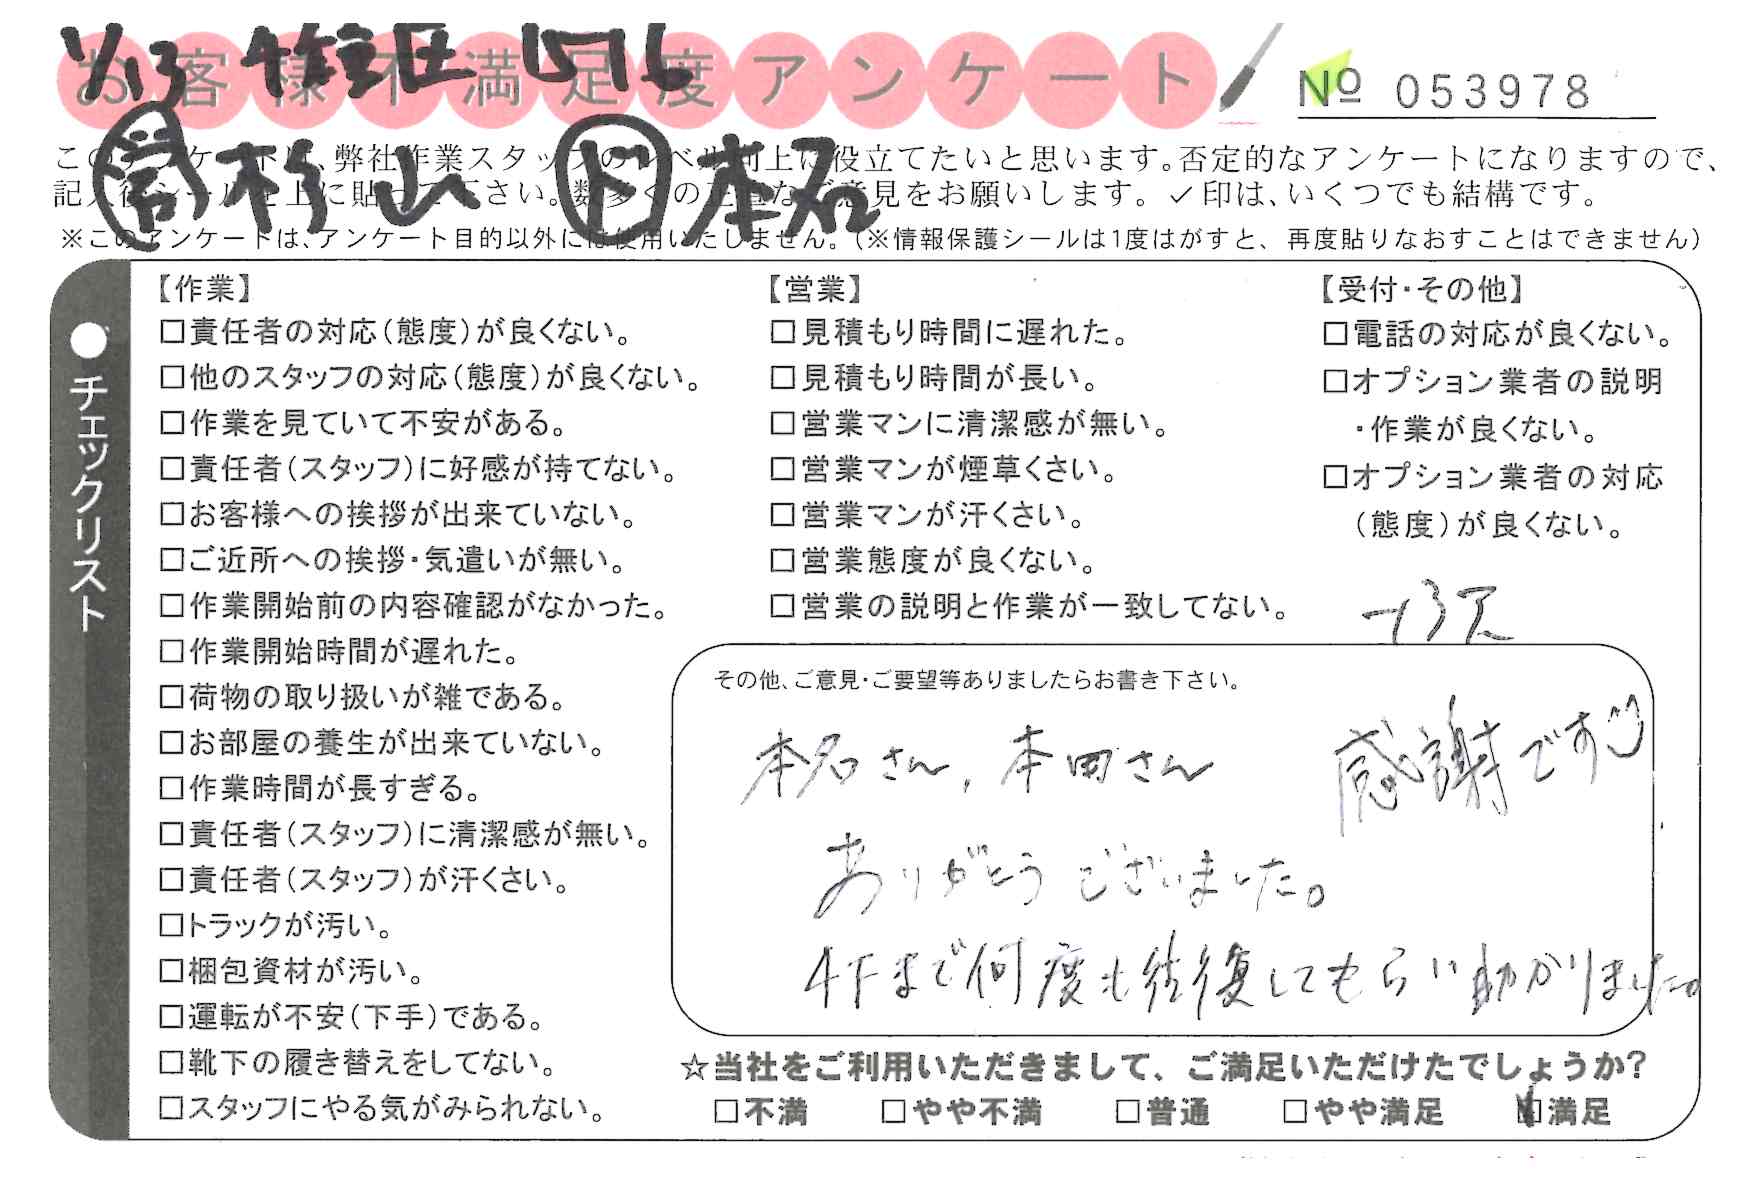 お客様不満足度アンケート
№ 053978
1/13
営 杉山 ド 本名
このアンケートは、弊社作業スタッフのレベル向上に役立てたいと思います。否定的なアンケートになりますので、
記入後シールを上に貼って下さい。数多くの正直なご意見をお願いします。✓印は、いくつでも結構です。
※このアンケートは、アンケート目的以外には使用いたしません。(※情報保護シールは1度はがすと、再度貼りなおすことはできません)
●チェックリスト
【作業】
□責任者の対応(態度)が良くない。
□他のスタッフの対応(態度)が良くない。
□作業を見ていて不安がある。
□責任者(スタッフ)に好感が持てない。
□お客様への挨拶が出来ていない。
□ご近所への挨拶・気遣いが無い。
□作業開始前の内容確認がなかった。
□作業開始時間が遅れた。
□荷物の取り扱いが雑である。
□お部屋の養生が出来ていない。
□作業時間が長すぎる。
□責任者(スタッフ)に清潔感が無い。
□責任者(スタッフ)が汗くさい。
□トラックが汚い。
□梱包資材が汚い。
□運転が不安(下手)である。
□靴下の履き替えをしてない。
□スタッフにやる気がみられない。
【営業】
□見積もり時間に遅れた。
□見積もり時間が長い。
□営業マンに清潔感が無い。
□営業マンが煙草くさい。
□営業マンが汗くさい。
□営業態度が良くない。
□営業の説明と作業が一致してない。
【受付・その他】
□電話の対応が良くない。
□オプション業者の説明
・作業が良くない。
□オプション業者の対応
(態度)が良くない。
その他、ご意見・ご要望等ありましたらお書き下さい。
本名さん, 本田さん 感謝です
ありがとうございました。
4Fまで何度も往復してもらい助かりました。
☆当社をご利用いただきまして、ご満足いただけたでしょうか?
□不満 □やや不満 □普通 □やや満足 ☑満足